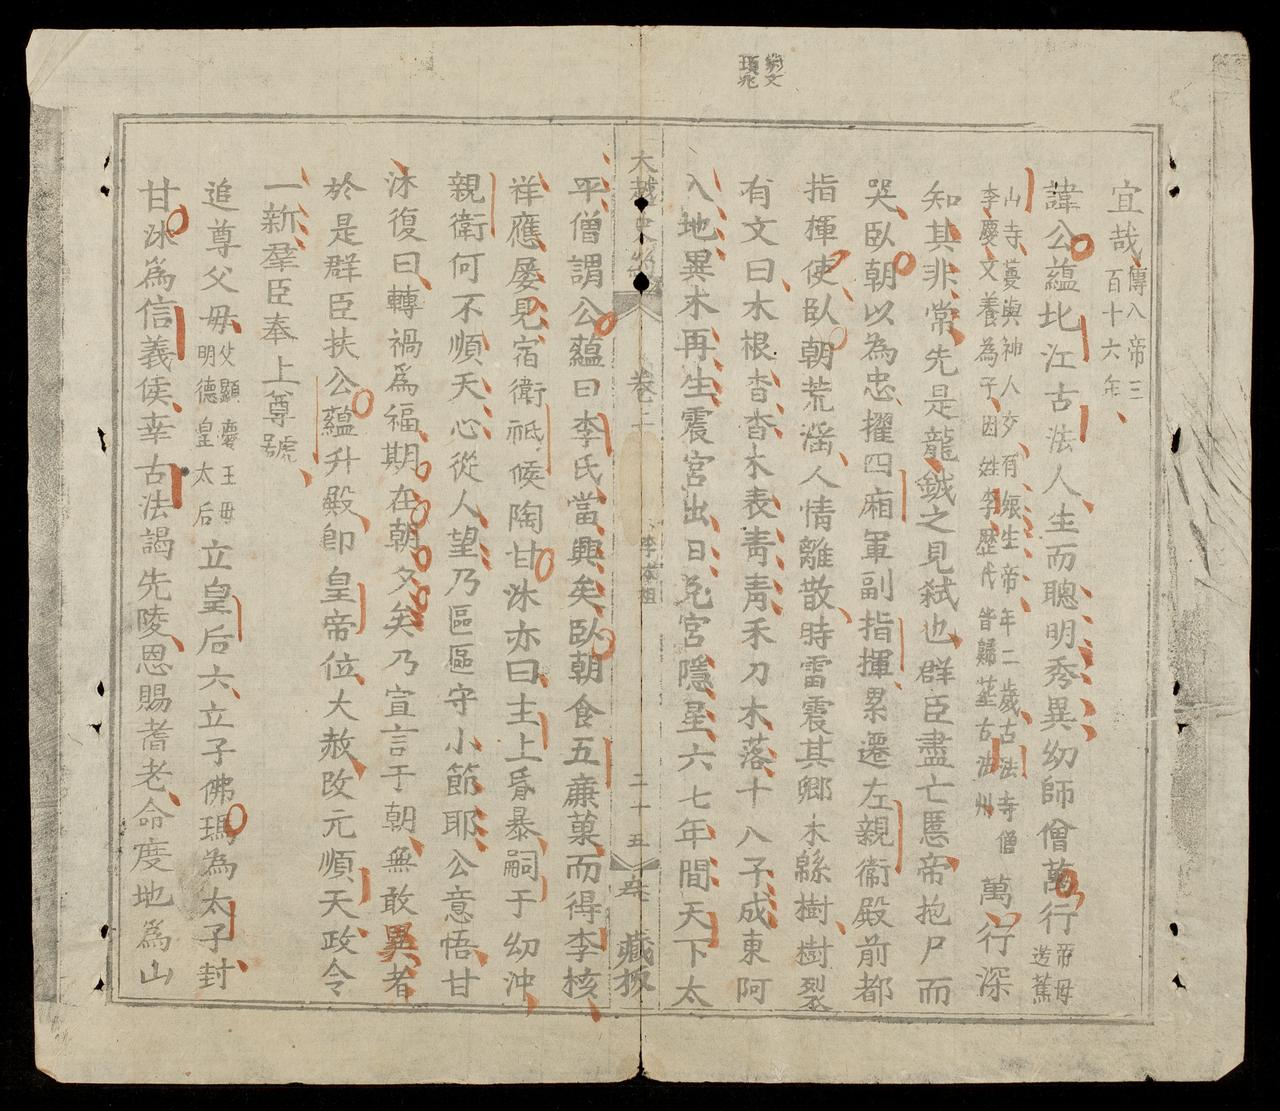 宜哉傳八帝三
百十六年
諱公蘊北江古法人生而聰明秀異幼師僧萬行帝母
造蕉
山寺蔓與神人交有娠生帝年二歲古法寺僧
李慶文養為子因姓李歷代皆歸塟古法州
萬行深
知其非常先是龍鋮之見弑也群臣盡亡匿帝抱尸而
哭臥朝以為忠擢四廂軍副指揮累遷左親衞殿前都
指揮使臥朝荒滛人情離散時雷震其鄉木緜樹樹裂
有文曰木根杳杳木表靑靑禾刀木落十八子成東阿
入地異木再生震宮出日兌宮隱星六七年間天下太
大越史約 卷二 李太祖 二十五 藏板
平僧謂公蘊曰李氏當興矣臥朝食五亷菓而得李核
祥應屢見宿衛祗候陶甘沐亦曰主上昏暴嗣子幼沖
親衛何不順天心從人望乃區區守小節耶公意悟甘
沐復曰轉禍為福期在朝夕矣乃宣言于朝無敢異者
於是群臣扶公蘊升殿即皇帝位大赦改元順天政令
一新羣臣奉上尊號
追尊父毋父顯慶王毋
明德皇太后
立皇后六立子佛瑪為太子封
甘沐為信義侯幸古法謁先陵恩賜耆老命度地為山